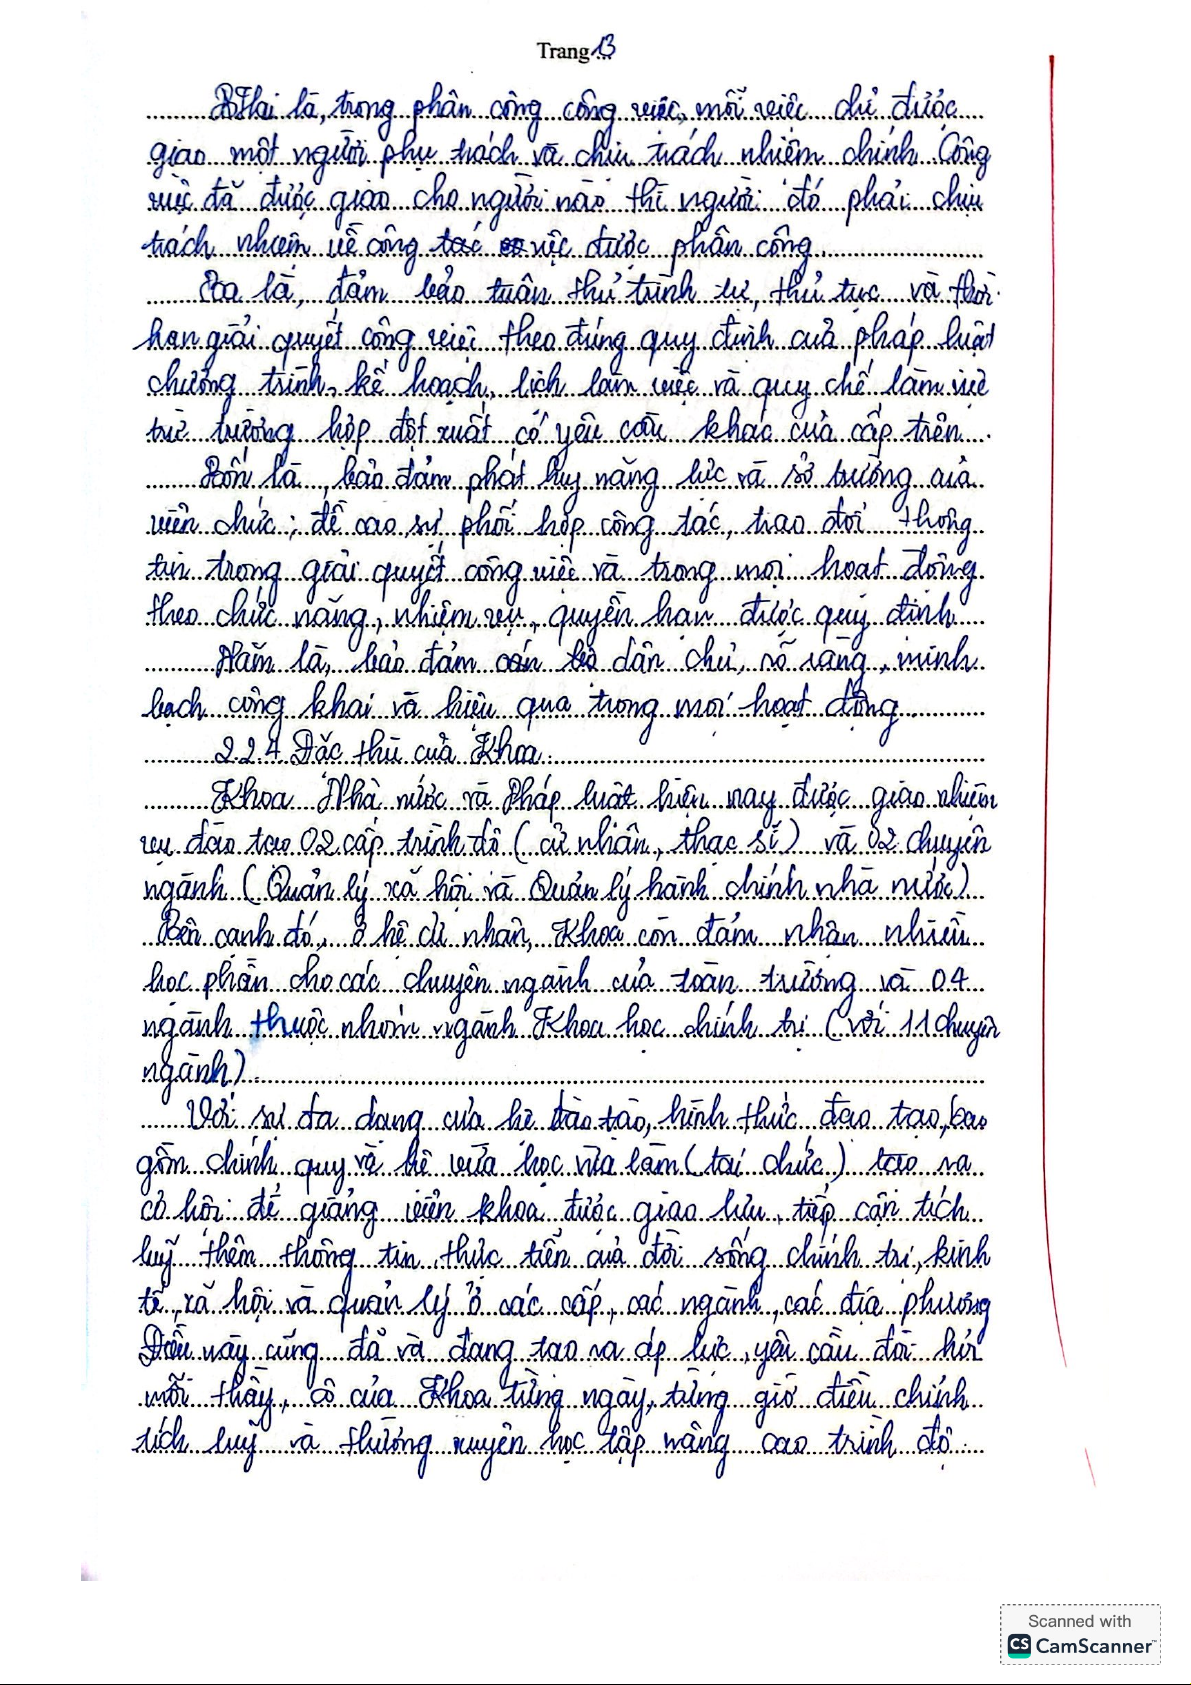 Trang 13
Hai là, trong phân công công việc, mỗi việc chỉ được
giao một người phụ trách và chịu trách nhiệm chính. Công
việc đã được giao cho người nào thì người đó phải chịu
trách nhiệm về công tác việc được phân công.
Ba là, đảm bảo tuân thủ trình tự, thủ tục và thời
hạn giải quyết công việc theo đúng quy định của pháp luật
chương trình, kế hoạch, lịch làm việc và quy chế làm việc
trừ trường hợp đột xuất có yêu cầu khác của cấp trên.
Bốn là, bảo đảm phát huy năng lực và sở trường của
viên chức; đề cao sự phối hợp công tác, trao đổi thông
tin trong giải quyết công việc và trong mọi hoạt động
theo chức năng, nhiệm vụ, quyền hạn được quy định
Năm là, bảo đảm dân chủ, rõ ràng, minh
bạch công khai và hiệu qua trong mọi hoạt động.
2.2.4 Đặc thù của Khoa.
Khoa Nhà nước và Pháp luật hiện nay được giao nhiệm
vụ đào tạo 02 cấp trình độ (cử nhân, thạc sĩ) và 02 chuyên
ngành (Quản lý xã hội và Quản lý hành chính nhà nước)
Bên cạnh đó, ở hệ cử nhân, Khoa còn đảm nhận nhiều
học phần cho các chuyên ngành của toàn trường và 04
ngành thuộc nhóm ngành Khoa học chính trị (với 11 chuyên
ngành).
Với sự đa dạng của hệ đào tạo, hình thức đào tạo, bao
gồm chính quy và hệ vừa học vừa làm (tại chức) tạo ra
cơ hội để giảng viên khoa được giao lưu, tiếp cận tích
luỹ thêm thông tin thực tiễn của đời sống chính trị, kinh
tế, xã hội và quản lý ở các cấp, các ngành, các địa phương
Điều này cũng đã và đang tạo ra áp lực, yêu cầu đòi hỏi
mỗi thầy, cô của Khoa từng ngày, từng giờ điều chỉnh
tích luỹ và thường xuyên học tập nâng cao trình độ.
Scanned with
CS CamScanner